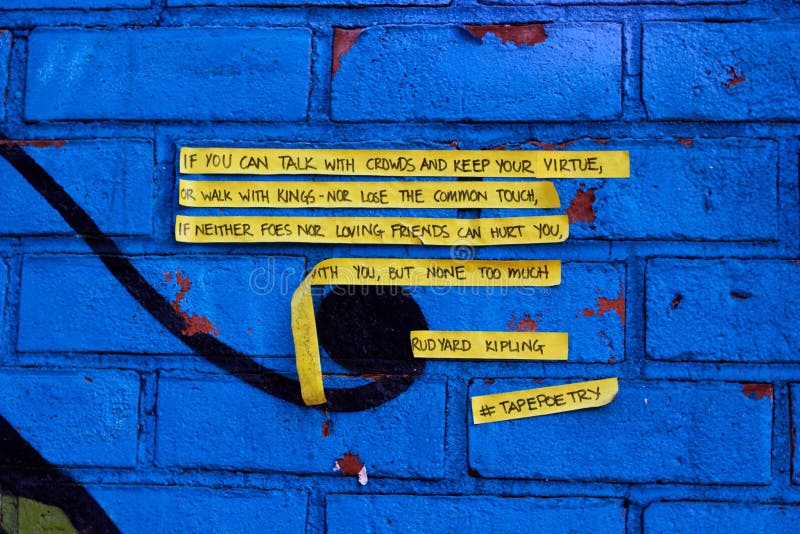 IF YOU CAN TALK WITH CROWDS AND KEEP YOUR VIRTUE,
OR WALK WITH KINGS - NOR LOSE THE COMMON TOUCH,
IF NEITHER FOES NOR LOVING FRIENDS CAN HURT YOU,
YOU, BUT NONE TOO MUCH
RUDYARD KIPLING
#TAPEPOETRY